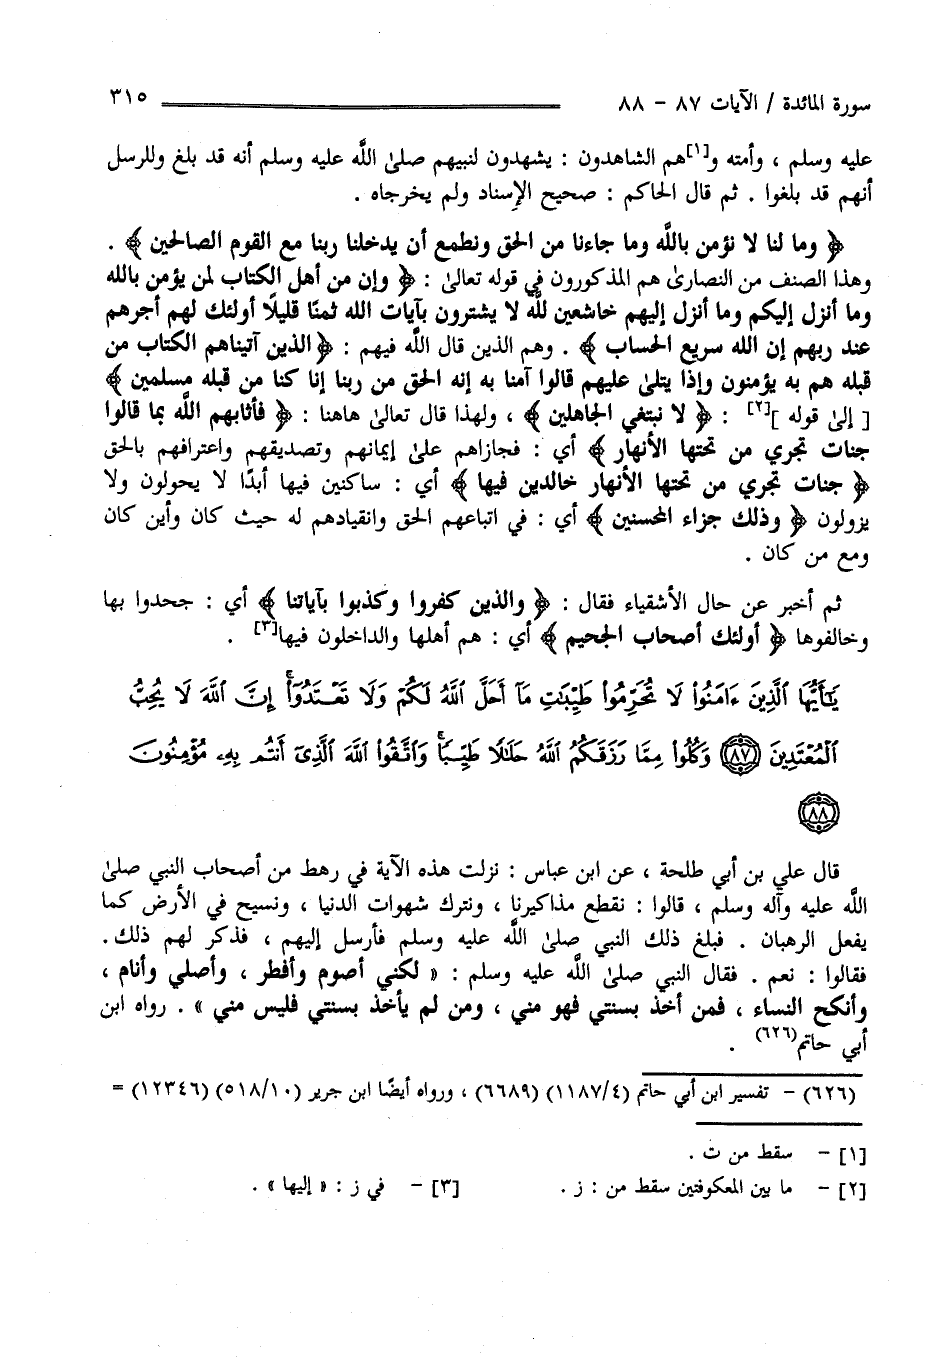 سورة المائدة / الآيات ٨٧ - ٨٨ ٣١٥
عليه وسلم ، وأمته و[١]هم الشاهدون : يشهدون لنبيهم صلىٰ اللَّه عليه وسلم أنه قد بلغ وللرسل
أنهم قد بلغوا . ثم قال الحاكم : صحيح الإسناد ولم يخرجاه .
﴿ وما لنا لا نؤمن باللَّه وما جاءنا من الحق ونطمع أن يدخلنا ربنا مع القوم الصالحين ﴾ .
وهذا الصنف من النصارىٰ هم المذكورون في قوله تعالىٰ : ﴿ وإن من أهل الكتاب لمن يؤمن بالله
وما أنزل إليكم وما أنزل إليهم خاشعين للَّه لا يشترون بآيات الله ثمنًا قليلًا أولئك لهم أجرهم
عند ربهم إن الله سريع الحساب ﴾ . وهم الذين قال اللَّه فيهم : ﴿الذين آتيناهم الكتاب من
قبله هم به يؤمنون وإذا يتلىٰ عليهم قالوا آمنا به إنه الحق من ربنا إنا كنا من قبله مسلمين ﴾
[ إلىٰ قوله ][٢] : ﴿ لا نبتغي الجاهلين ﴾ ، ولهذا قال تعالىٰ هاهنا : ﴿ فأثابهم اللَّه بما قالوا
جنات تجري من تحتها الأنهار ﴾ أي : فجازاهم علىٰ إيمانهم وتصديقهم واعترافهم بالحق
﴿ جنات تجري من تحتها الأنهار خالدين فيها ﴾ أي : ساكنين فيها أبدًا لا يحولون ولا
يزولون ﴿ وذلك جزاء المحسنين ﴾ أي : في اتباعهم الحق وانقيادهم له حيث كان وأين كان
ومع من كان .
ثم أخبر عن حال الأشقياء فقال : ﴿ والذين كفروا وكذبوا بآياتنا ﴾ أي : جحدوا بها
وخالفوها ﴿ أولئك أصحاب الجحيم ﴾ أي : هم أهلها والداخلون فيها[٣] .
يَٰٓأَيُّهَا ٱلَّذِينَ ءَامَنُواْ لَا تُحَرِّمُواْ طَيِّبَٰتِ مَآ أَحَلَّ ٱللَّهُ لَكُمۡ وَلَا تَعۡتَدُوٓاْۚ إِنَّ ٱللَّهَ لَا يُحِبُّ
ٱلۡمُعۡتَدِينَ ٨٧ وَكُلُواْ مِمَّا رَزَقَكُمُ ٱللَّهُ حَلَٰلٗا طَيِّبٗاۚ وَٱتَّقُواْ ٱللَّهَ ٱلَّذِيٓ أَنتُم بِهِۦ مُؤۡمِنُونَ
٨٨
قال علي بن أبي طلحة ، عن ابن عباس : نزلت هذه الآية في رهط من أصحاب النبي صلىٰ
اللَّه عليه وآله وسلم ، قالوا : نقطع مذاكيرنا ، ونترك شهوات الدنيا ، ونسيح في الأرض كما
يفعل الرهبان . فبلغ ذلك النبي صلىٰ اللَّه عليه وسلم فأرسل إليهم ، فذكر لهم ذلك.
فقالوا : نعم . فقال النبي صلىٰ اللَّه عليه وسلم : « لكني أصوم وأفطر ، وأصلي وأنام ،
وأنكح النساء ، فمن أخذ بسنتي فهو مني ، ومن لم يأخذ بسنتي فليس مني » . رواه ابن
أبي حاتم(٦٢٦) .
(٦٢٦) - تفسير ابن أبي حاتم (١١٨٧/٤) (٦٦٨٩) ، ورواه أيضًا ابن جرير (٥١٨/١٠) (١٢٣٤٦) =
[١] - سقط من ت .
[٢] - ما بين المعكوفتين سقط من : ز . [٣] - في ز : « إليها » .